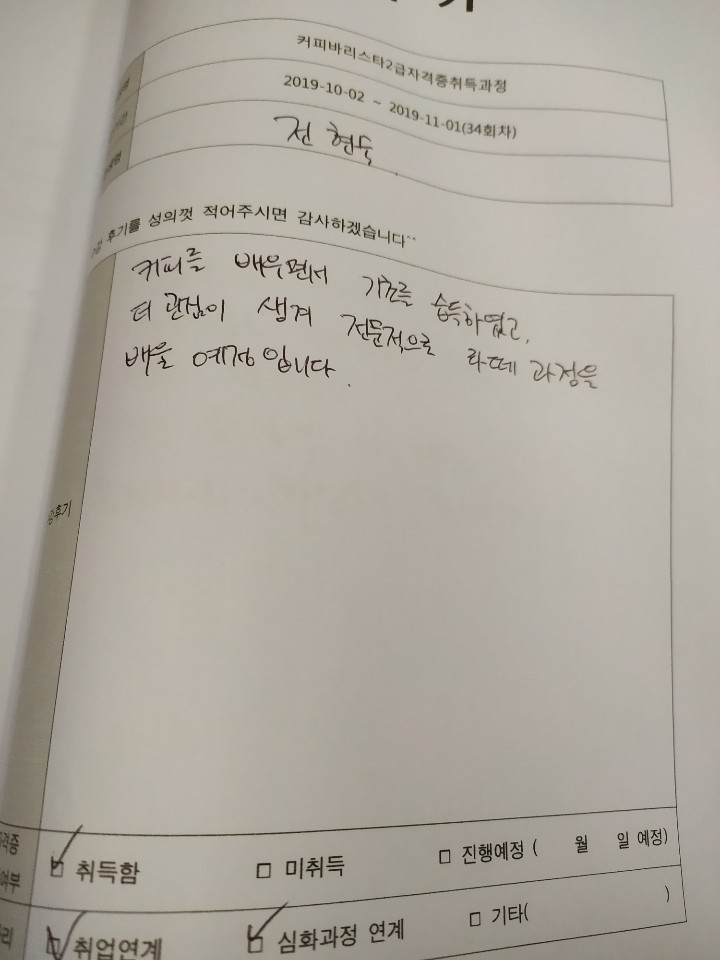 커피바리스타2급자격증취득과정
2019-10-02 ~ 2019-11-01(34회차)
전현득
후기를 성의껏 적어주시면 감사하겠습니다^^
커피를 배우면서 기초를 습득하였고,
더 관심이 생겨 전문적으로 라떼 과정을
배울 예정입니다.
후기
격증
여부
취득함 □ 미취득 □ 진행예정 ( 월 일 예정)
취업연계 심화과정 연계 □ 기타( )